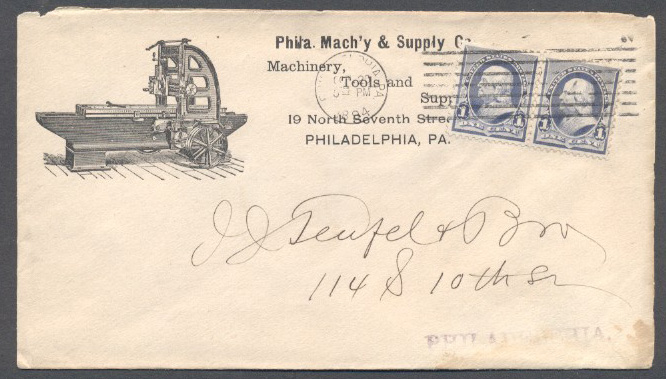 Phila. Mach'y & Supply Co
Machinery,
Tools and
Supp
19 North Seventh Stree
PHILADELPHIA, PA.
PM
1894
1
1
J J Teufel & Bro
114 S 10th St